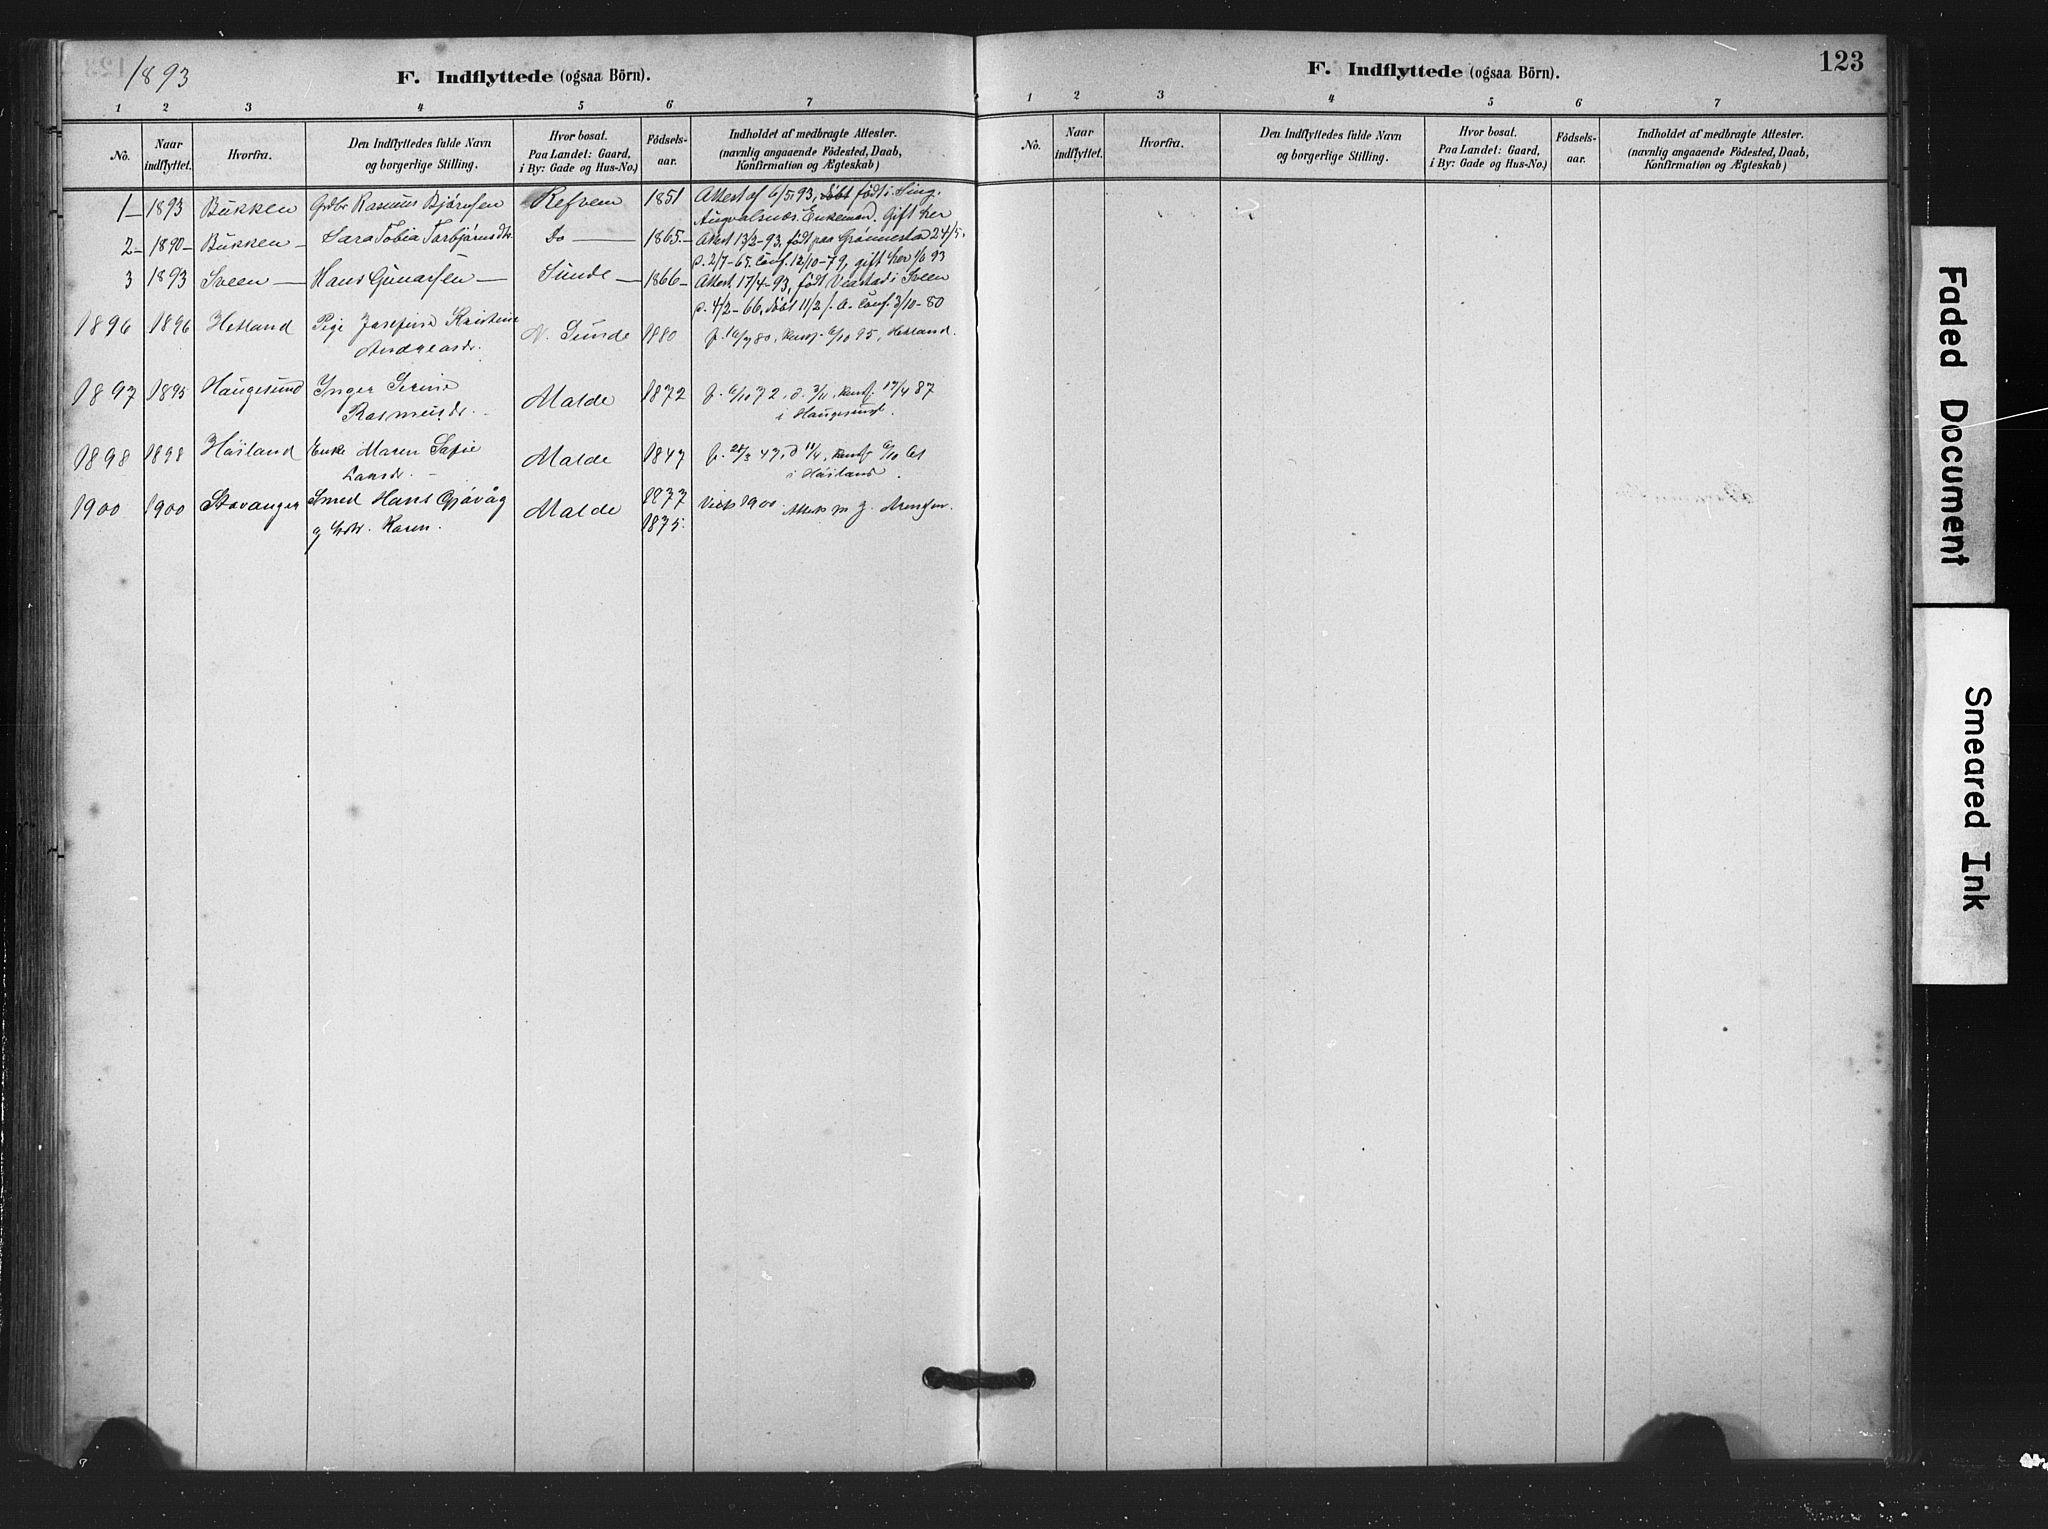 1893
F. Indflyttede (ogsaa Börn).
1 2 3 4 5 6 7
No. Naar indflyttet. Hvorfra. Den Indflyttedes fulde Navn og borgerlige Stilling. Hvor bosat. Paa Landet: Gaard, i By: Gade og Hus-No.) Födsels-aar. Indholdet af medbragte Attester. (navnlig angaaende Födested, Daab, Konfirmation og Ægteskab)
1– 1893 Bukken Grdbr Rasmus Bjørnsen Refvem 1851 Attest af 6/5 93, döbt födt i
Augvalsnæs. Enkemand. Gift her
2– 1890– Bukken – Sara Tobia Torbjørnsdtr Do — 1865.– Attest 13/2–93, født paa Grønnestad 24/5
p. 2/7–65. Conf. 12/10–79, gift her 1/6 93
3 1893 Sveen – Hans Gunarsen — Sunde – 1866– Attest 17/4–93, født i Sveen
p. 4/2–66, döbt 11/2 s. A. Conf. 3/10–80
1896 1896 Hetland Pige Josefine Kristine N. Sunde 1880 f. 16/7 80, konf. 6/10 95, Hetland.
Andreasdr.
1897 1895 Haugesund Inger Serine Malde 1872 f. 6/10 72, d. 3/11, konf. 17/4 87
Rasmusdr. i Haugesund.
1898 1898 Höiland Enke Maren Sofie Malde 1847 f. 28/3 47, d 18/4, konf 6/10 61
Larsdr. – i Höiland.
1900 1900 Stavanger Smed Hans Gjøvåg Malde 1877 Viet 1900. Attest
og Hstr. Karen. 1875.
F. Indflyttede (ogsaa Börn).
123
1 2 3 4 5 6 7
No. Naar indflyttet. Hvorfra. Den Indflyttedes fulde Navn og borgerlige Stilling. Hvor bosat. Paa Landet: Gaard, i By: Gade og Hus-No.) Födsels-aar. Indholdet af medbragte Attester. (navnlig angaaende Födested, Daab, Konfirmation og Ægteskab)
Faded Document
Smeared Ink